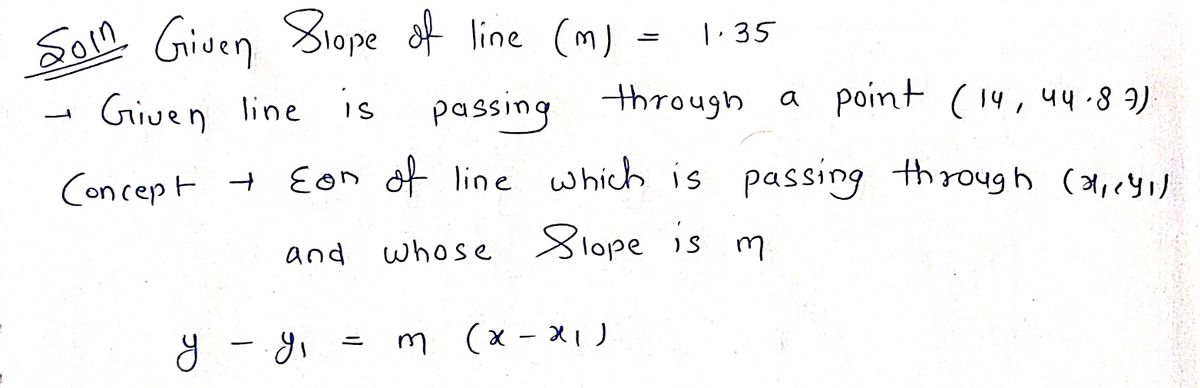 Soln Given Slope of line (m) = 1.35
→ Given line is passing through a point (14, 44.87)
Concept → Eqn of line which is passing through (x₁, y₁)
and whose Slope is m
y - y₁ = m (x - x₁)